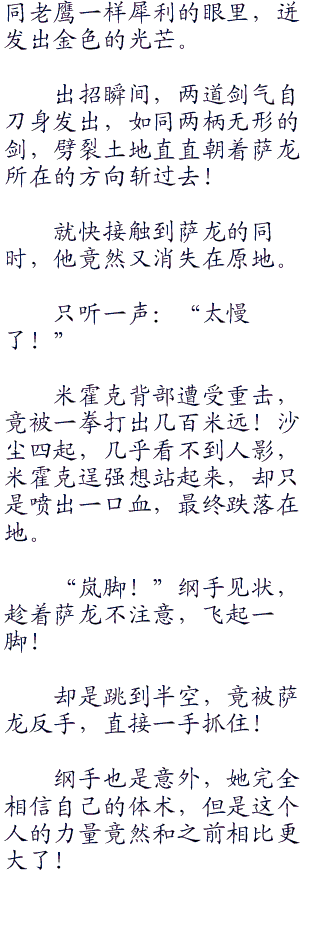 同老鹰一样犀利的眼里，迸
发出金色的光芒。
出招瞬间，两道剑气自
刀身发出，如同两柄无形的
剑，劈裂土地直直朝着萨龙
所在的方向斩过去！
就快接触到萨龙的同
时，他竟然又消失在原地。
只听一声：“太慢
了！”
米霍克背部遭受重击，
竟被一拳打出几百米远！沙
尘四起，几乎看不到人影，
米霍克逞强想站起来，却只
是喷出一口血，最终跌落在
地。
“岚脚！”纲手见状，
趁着萨龙不注意，飞起一
脚！
却是跳到半空，竟被萨
龙反手，直接一手抓住！
纲手也是意外，她完全
相信自己的体术，但是这个
人的力量竟然和之前相比更
大了！